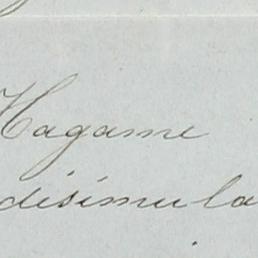 Hagame
disimula